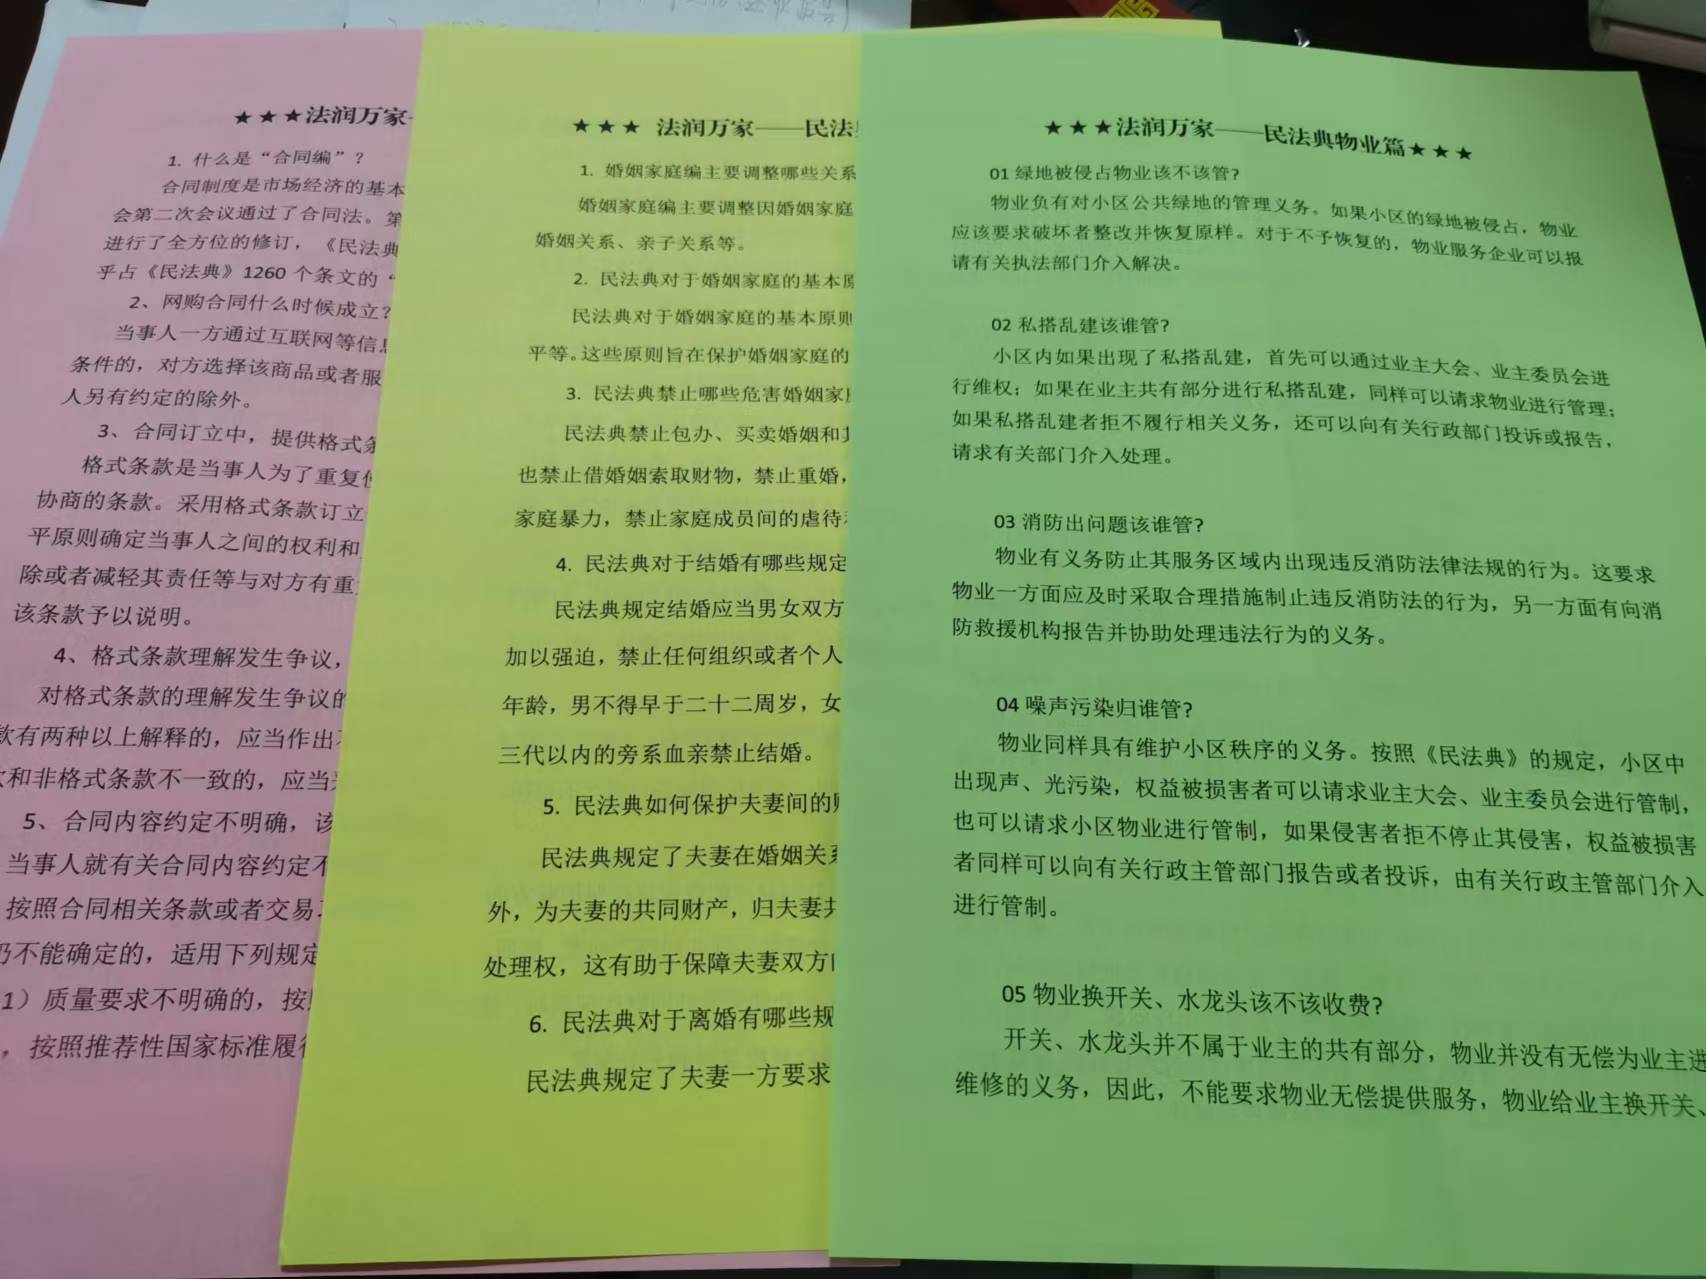 ★★★法润万家—
1. 什么是“合同编”?
合同制度是市场经济的基本
会第二次会议通过了合同法。第
进行了全方位的修订,《民法典
乎占《民法典》1260 个条文的“
2、网购合同什么时候成立?
当事人一方通过互联网等信息
条件的,对方选择该商品或者服
人另有约定的除外。
3、合同订立中,提供格式条
格式条款是当事人为了重复使
协商的条款。采用格式条款订立
平原则确定当事人之间的权利和
除或者减轻其责任等与对方有重
该条款予以说明。
4、格式条款理解发生争议,
对格式条款的理解发生争议的
款有两种以上解释的,应当作出不
和非格式条款不一致的,应当
5、合同内容约定不明确,该
当事人就有关合同内容约定不
按照合同相关条款或者交易
仍不能确定的,适用下列规定
1)质量要求不明确的,按
,按照推荐性国家标准履行
★★★ 法润万家——民法
1. 婚姻家庭编主要调整哪些关系
婚姻家庭编主要调整因婚姻家庭
婚姻关系、亲子关系等。
2. 民法典对于婚姻家庭的基本原
民法典对于婚姻家庭的基本原则
平等。这些原则旨在保护婚姻家庭的
3. 民法典禁止哪些危害婚姻家庭
民法典禁止包办、买卖婚姻和其
也禁止借婚姻索取财物,禁止重婚,
家庭暴力,禁止家庭成员间的虐待
4. 民法典对于结婚有哪些规定
民法典规定结婚应当男女双方
加以强迫,禁止任何组织或者个人
年龄,男不得早于二十二周岁,女
三代以内的旁系血亲禁止结婚。
5. 民法典如何保护夫妻间的财
民法典规定了夫妻在婚姻关系
外,为夫妻的共同财产,归夫妻共
处理权,这有助于保障夫妻双方
6. 民法典对于离婚有哪些规
民法典规定了夫妻一方要求
★★★法润万家——民法典物业篇★★★
01 绿地被侵占物业该不该管?
物业负有对小区公共绿地的管理义务。如果小区的绿地被侵占,物业
应该要求破坏者整改并恢复原样。对于不予恢复的,物业服务企业可以报
请有关执法部门介入解决。
02 私搭乱建该谁管?
小区内如果出现了私搭乱建,首先可以通过业主大会、业主委员会进
行维权;如果在业主共有部分进行私搭乱建,同样可以请求物业进行管理;
如果私搭乱建者拒不履行相关义务,还可以向有关行政部门投诉或报告,
请求有关部门介入处理。
03 消防出问题该谁管?
物业有义务防止其服务区域内出现违反消防法律法规的行为。这要求
物业一方面应及时采取合理措施制止违反消防法的行为,另一方面有向消
防救援机构报告并协助处理违法行为的义务。
04 噪声污染归谁管?
物业同样具有维护小区秩序的义务。按照《民法典》的规定,小区中
出现声、光污染,权益被损害者可以请求业主大会、业主委员会进行管制,
也可以请求小区物业进行管制,如果侵害者拒不停止其侵害,权益被损害
者同样可以向有关行政主管部门报告或者投诉,由有关行政主管部门介入
进行管制。
05 物业换开关、水龙头该不该收费?
开关、水龙头并不属于业主的共有部分,物业并没有无偿为业主进
维修的义务,因此,不能要求物业无偿提供服务,物业给业主换开关、